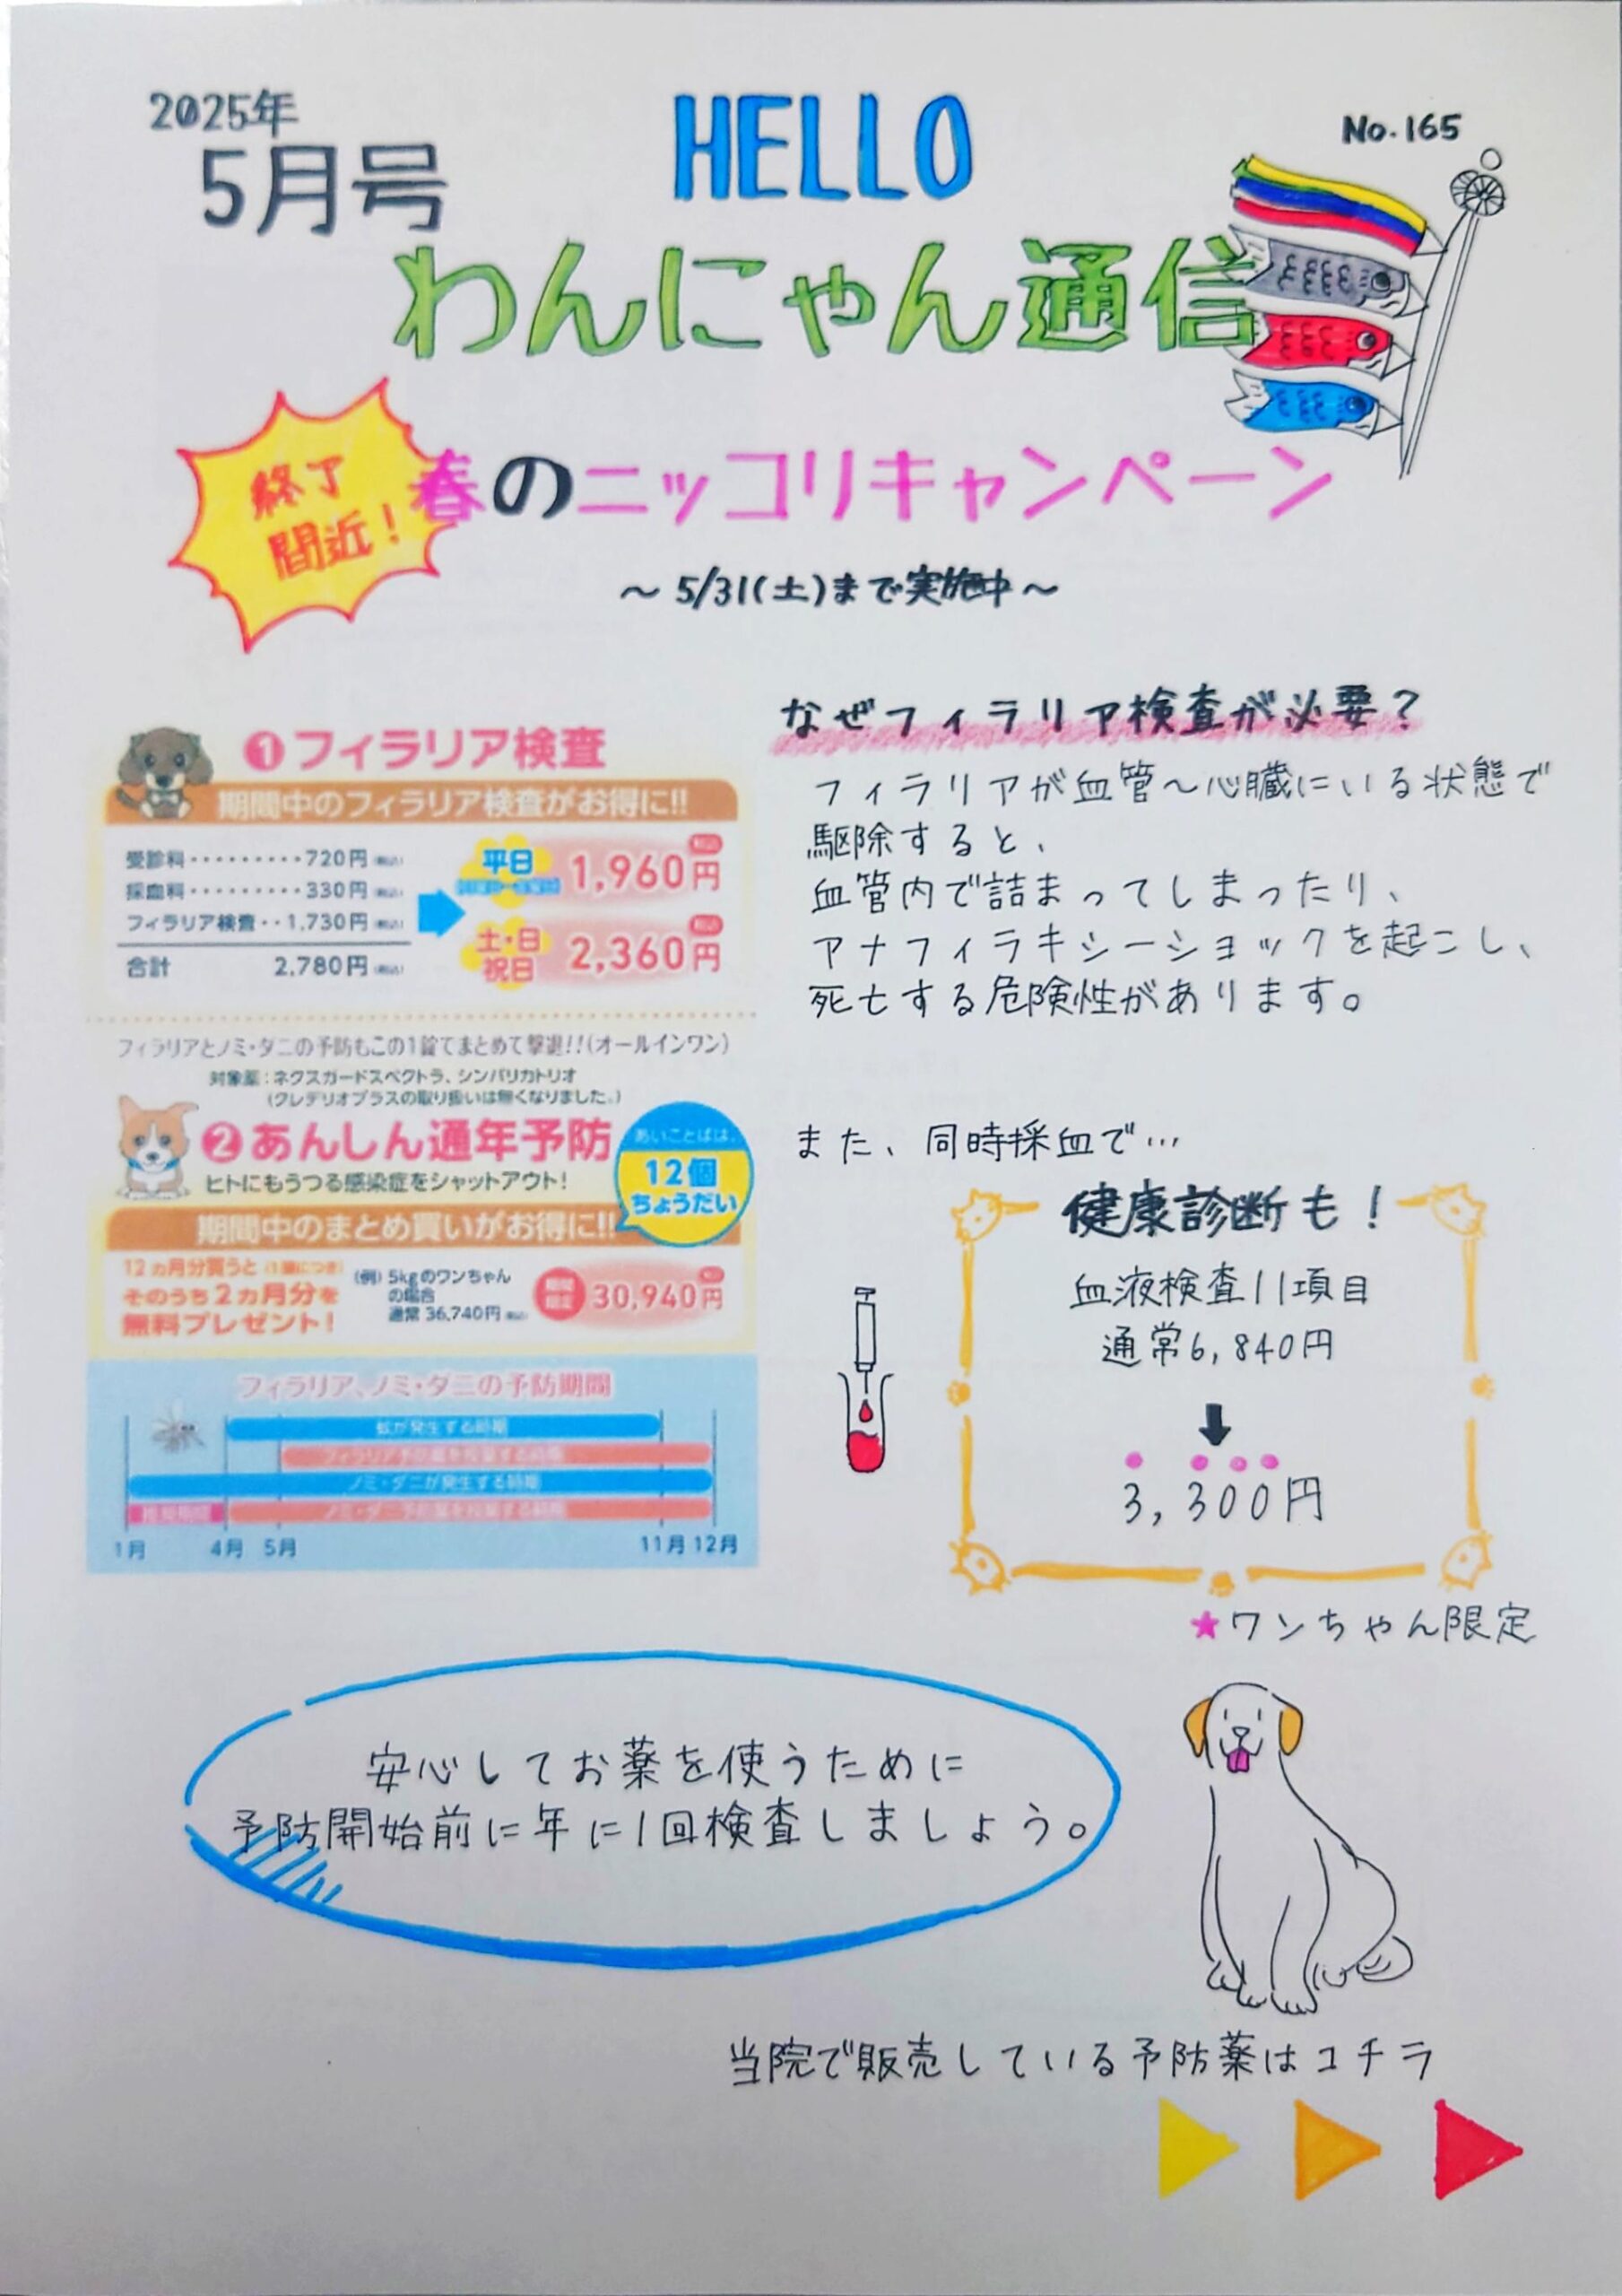 2025年
5月号
HELLO
No.165
わんにゃん通信
終了
間近！
春のニッコリキャンペーン
～5/31(土)まで実施中～
①フィラリア検査
期間中のフィラリア検査がお得に!!
受診料・・・・・・・・・720円(税込)
採血料・・・・・・・・・330円(税込)
フィラリア検査・・1,730円(税込)
合計 2,780円(税込)
平日
1,960円
土・日
祝日
2,360円
フィラリアとノミ・ダニの予防もこの1錠でまとめて撃退!!(オールインワン)
対象薬：ネクスガードスペクトラ、シンパリカトリオ
(クレデリオプラスの取り扱いは無くなりました。)
②あんしん通年予防
ヒトにもうつる感染症をシャットアウト！
あいことばは、
12個
ちょうだい
期間中のまとめ買いがお得に!!
12ヵ月分買うと(1頭につき)
そのうち2ヵ月分を
無料プレゼント！
(例)5kgのワンちゃん
の場合
通常 36,740円(税込)
30,940円
フィラリア、ノミ・ダニの予防期間
蚊が発生する時期
フィラリア予防薬を投薬する時期
ノミ・ダニが発生する時期
ノミ・ダニ予防薬を投薬する時期
1月 4月 5月 11月 12月
なぜフィラリア検査が必要？
フィラリアが血管～心臓にいる状態で
駆除すると、
血管内で詰まってしまったり、
アナフィラキシーショックを起こし、
死亡する危険性があります。
また、同時採血で…
健康診断も！
血液検査11項目
通常6,840円
3,300円
★ワンちゃん限定
安心してお薬を使うために
予防開始前に年に1回検査しましょう。
当院で販売している予防薬はコチラ